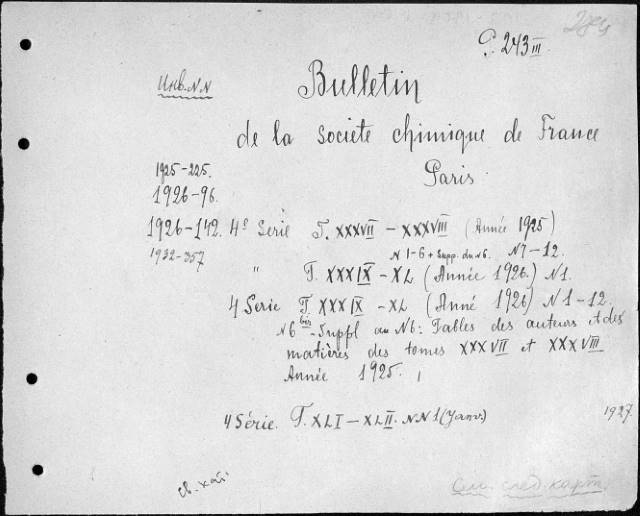 P. 243 III
Инв. N.N
Bulletin
de la societe chimique de France
Paris
1925-225.
1926-96.
1926-142. 4e Serie T. XXXVII - XXXVIII (Année 1925)
1932-357 N 1-6 + Supp. du N6. N7-12.
" T. XXXIX - XL (Année 1926.) N1.
4 Serie T. XXXIX - XL (Anné 1926) N1-12.
N6 bis - Suppl au N6: Tables des auteurs et des
matières des tomes XXXVII et XXXVIII
Année 1925.
4 Série. T. XLI - XLII. NN1 (Janv.) 1927.
св. кат.
См. след. карт.